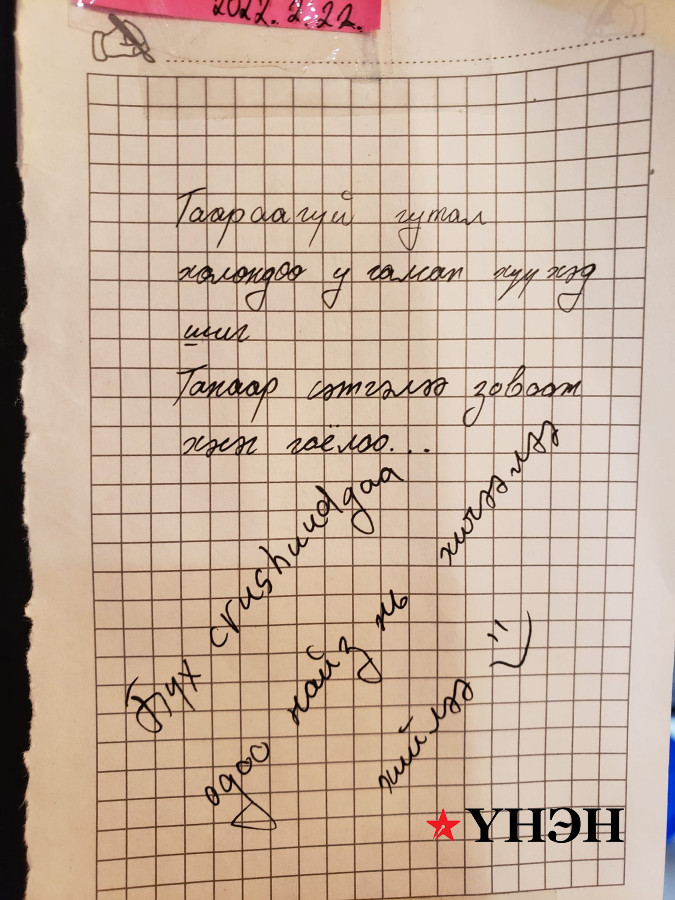 2022.2.22.
Таараагүй гутал
холондоо угалсан хүүхэд
шиг
Танаар сэтгэлээ зовоож
хэсэг гоёлоо...
Бүх crushuudдаа
одоо найз нь хичээлээ
хийлээ
ҮНЭН